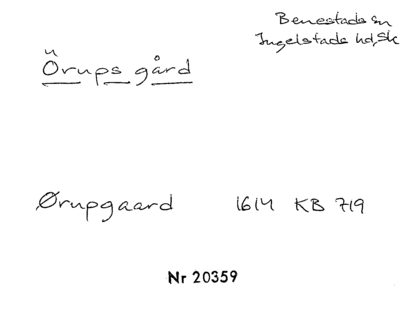 Benestads sn
Ingelstads hd, Sk
Örups gård
Ørupgaard 1614 KB 719
Nr 20359